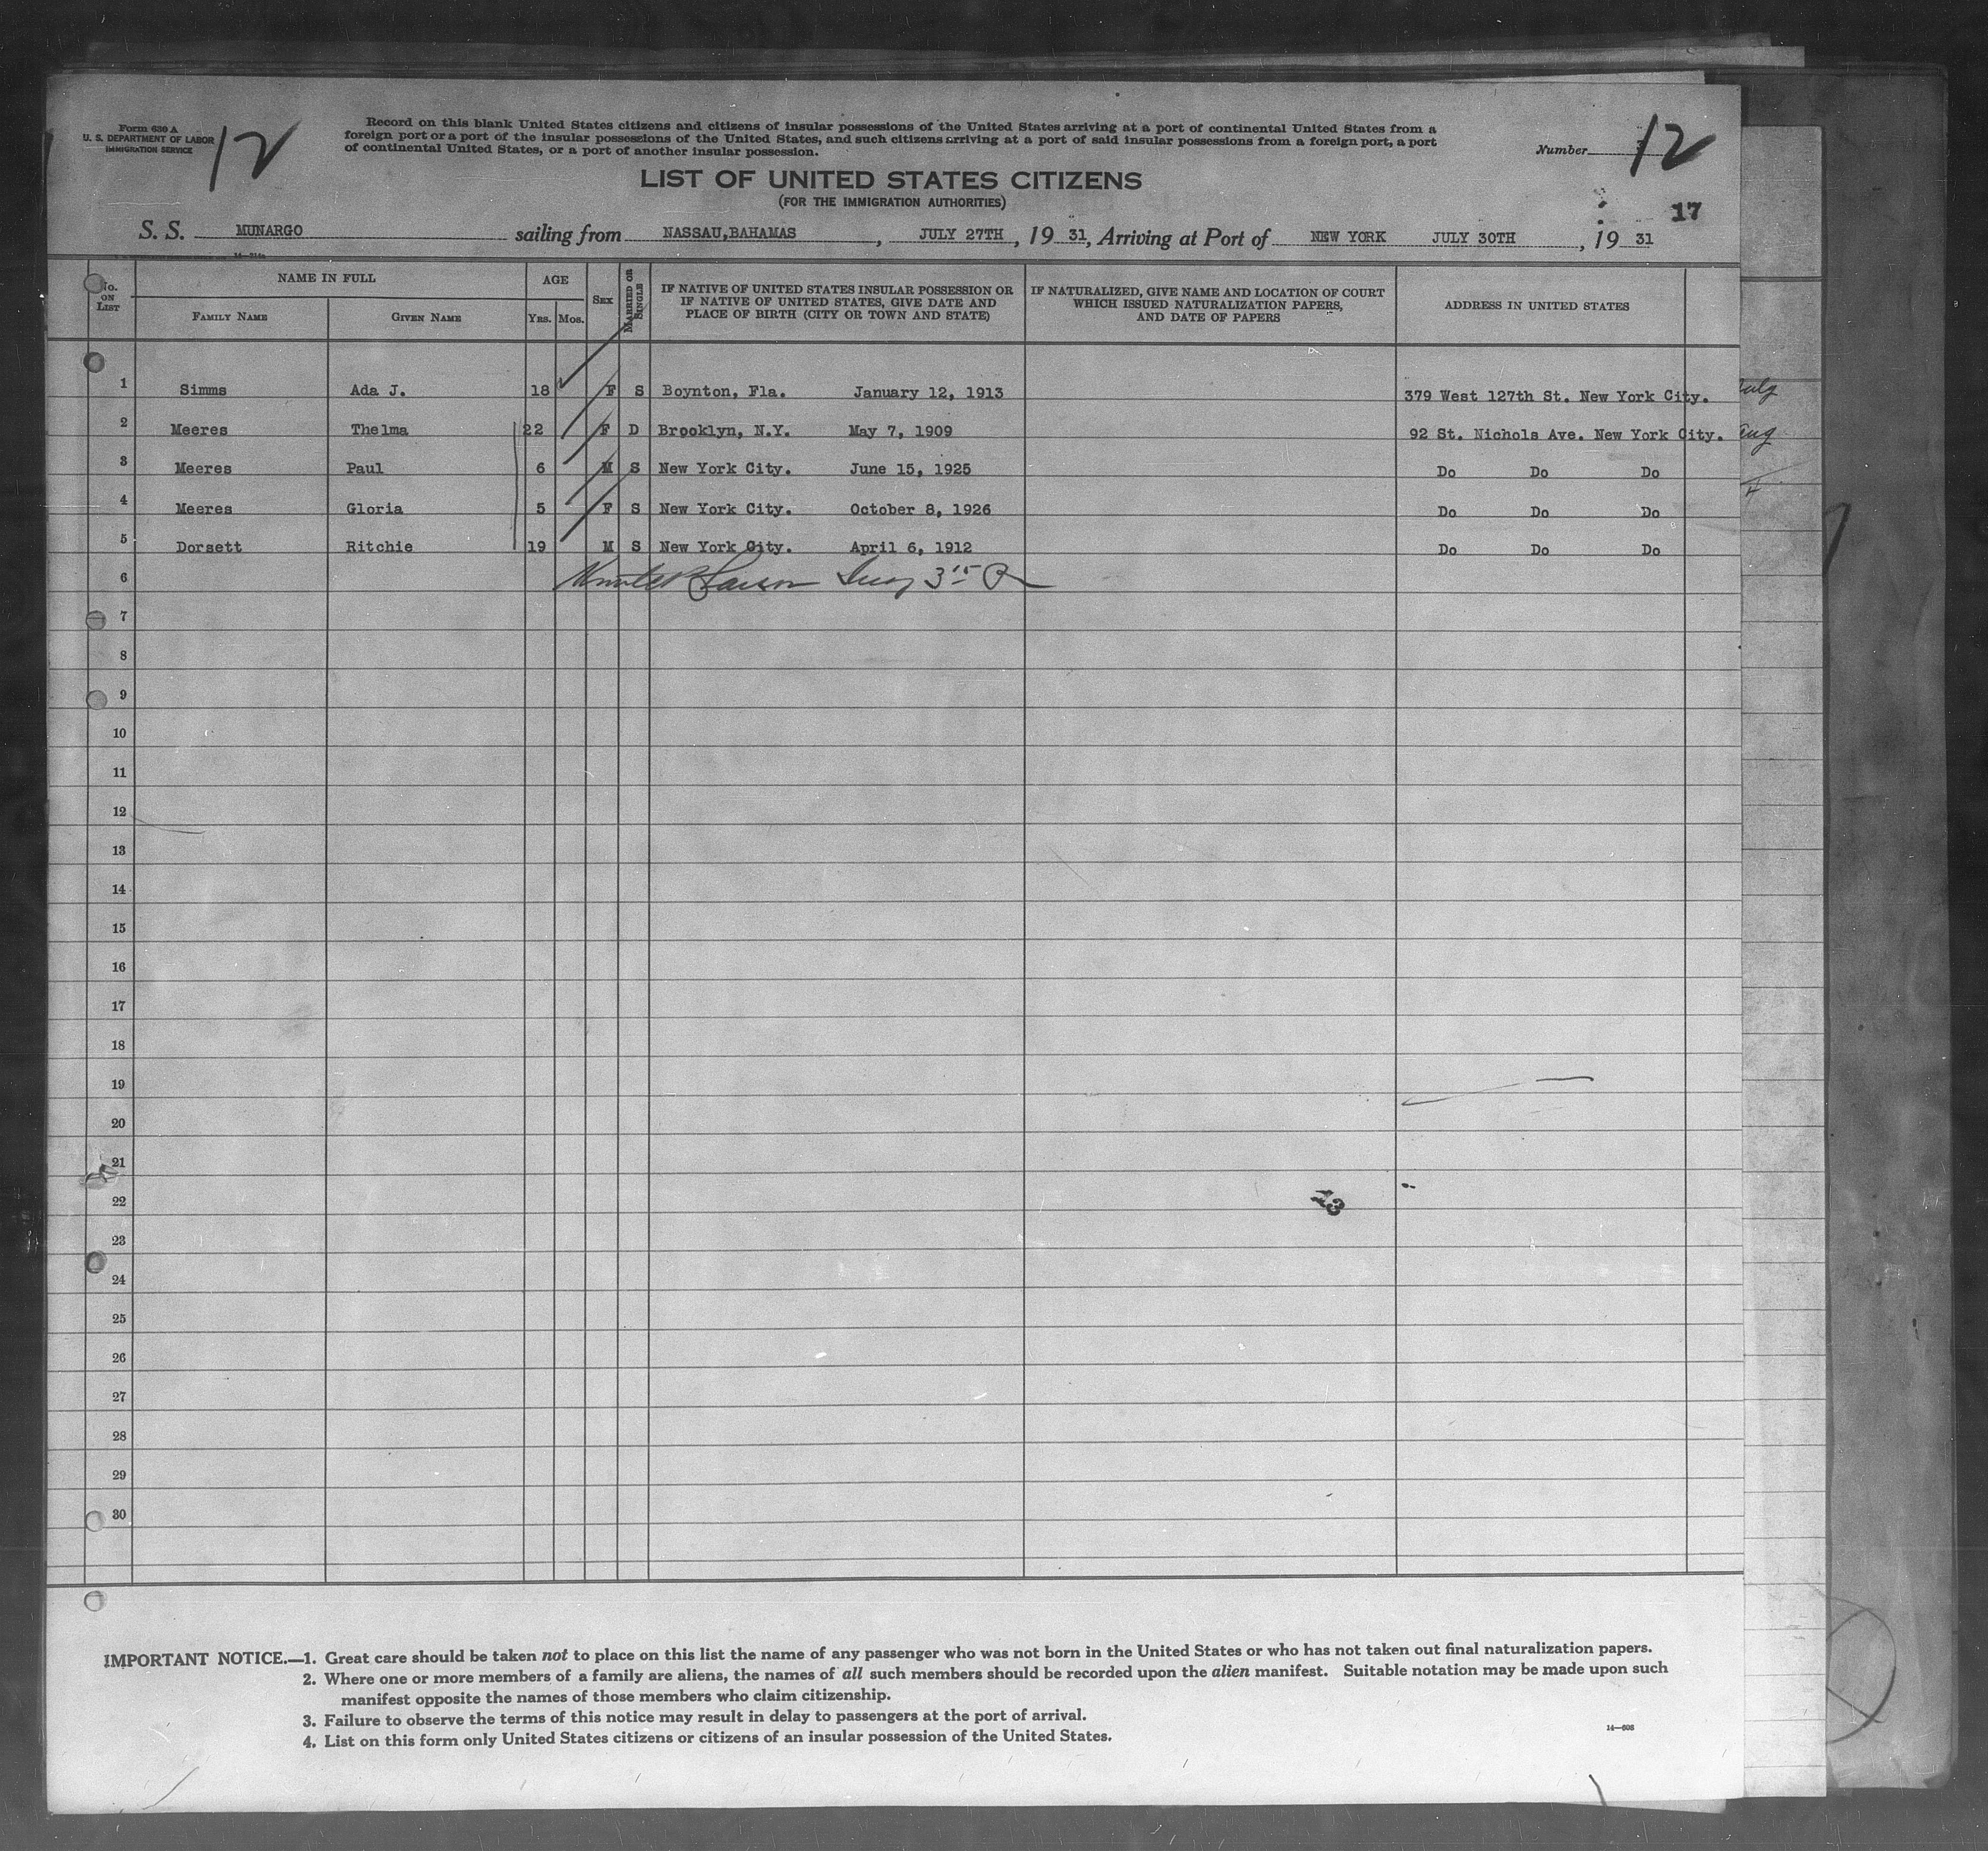 Form 630 A
U. S. DEPARTMENT OF LABOR
IMMIGRATION SERVICE
12
Record on this blank United States citizens and citizens of insular possessions of the United States arriving at a port of continental United States from a
foreign port or a port of the insular possessions of the United States, and such citizens arriving at a port of said insular possessions from a foreign port, a port
of continental United States, or a port of another insular possession.
Number 12
LIST OF UNITED STATES CITIZENS
(FOR THE IMMIGRATION AUTHORITIES)
17
S. S. MUNARGO sailing from NASSAU,BAHAMAS, JULY 27TH, 19 31, Arriving at Port of NEW YORK JULY 30TH, 19 31
No. ON LIST NAME IN FULL AGE SEX MARRIED OR SINGLE IF NATIVE OF UNITED STATES INSULAR POSSESSION OR IF NATIVE OF UNITED STATES, GIVE DATE AND PLACE OF BIRTH (CITY OR TOWN AND STATE) IF NATURALIZED, GIVE NAME AND LOCATION OF COURT WHICH ISSUED NATURALIZATION PAPERS, AND DATE OF PAPERS ADDRESS IN UNITED STATES
FAMILY NAME GIVEN NAME YRS. MOS.
1 Simms Ada J. 18 F S Boynton, Fla. January 12, 1913 379 West 127th St. New York City.
2 Meeres Thelma 22 F D Brooklyn, N.Y. May 7, 1909 92 St. Nichols Ave. New York City.
3 Meeres Paul 6 M S New York City. June 15, 1925 Do Do Do
4 Meeres Gloria 5 F S New York City. October 8, 1926 Do Do Do
5 Dorsett Ritchie 19 M S New York City. April 6, 1912 Do Do Do
6
7
8
9
10
11
12
13
14
15
16
17
18
19
20
21
22
13
23
24
25
26
27
28
29
30
IMPORTANT NOTICE.—1. Great care should be taken not to place on this list the name of any passenger who was not born in the United States or who has not taken out final naturalization papers.
2. Where one or more members of a family are aliens, the names of all such members should be recorded upon the alien manifest. Suitable notation may be made upon such
manifest opposite the names of those members who claim citizenship.
3. Failure to observe the terms of this notice may result in delay to passengers at the port of arrival.
4. List on this form only United States citizens or citizens of an insular possession of the United States.